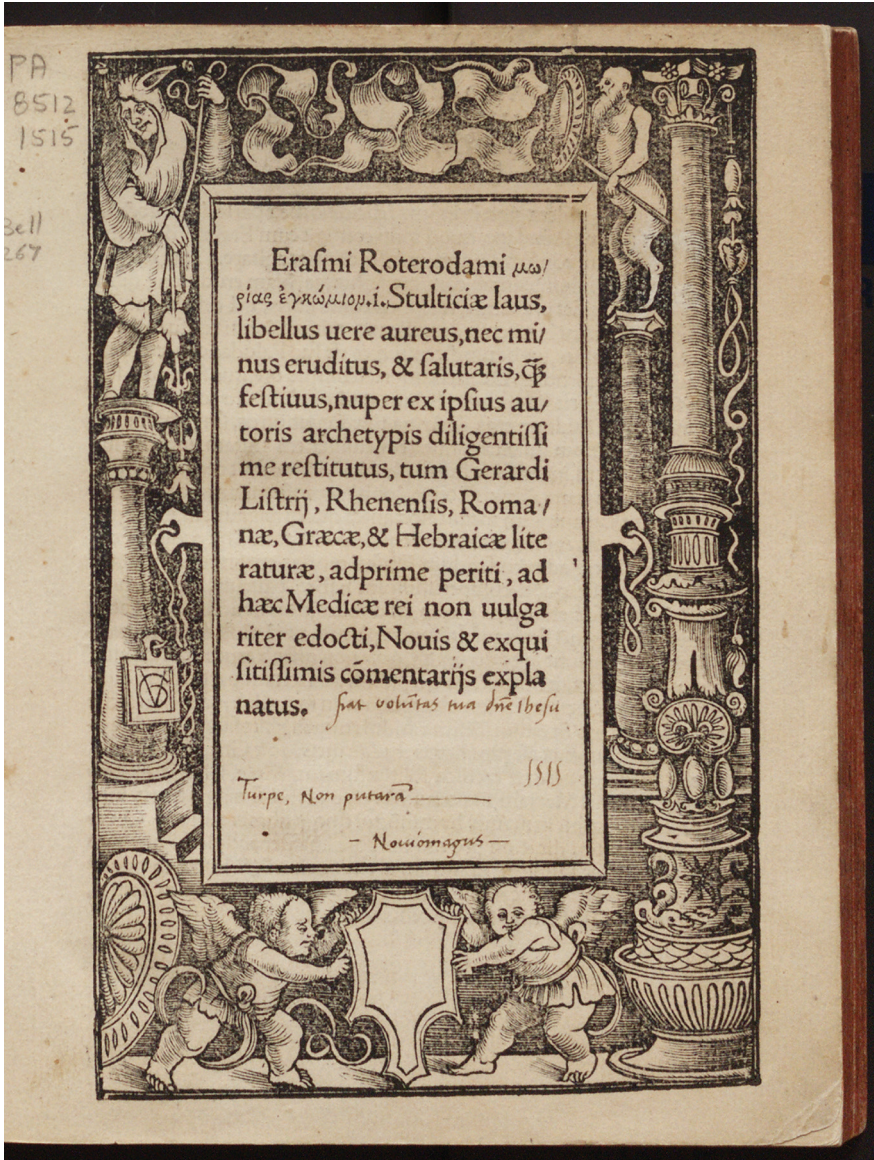 PA
8512
1515
Bell
267
Eraſmi Roterodami μω/
ρίας ἐγκώμιον.i.Stulticiæ laus,
libellus uere aureus,nec mi/
nus eruditus, & ſalutaris,q̃ꝫ
feſtiuus,nuper ex ipſius au/
toris archetypis diligentiſſi
me reſtitutus, tum Gerardi
Liſtrij, Rhenenſis, Roma/
næ,Græcæ,& Hebraicæ lite
raturæ, adprime periti, ad
hæc Medicæ rei non uulga
riter edocti,Nouis & exqui
ſitiſſimis cōmentarijs expla
natus. fiat volūtas tua dn̄e Iheſu
1515
Turpe, Non putarā
- Nouiomagus -
VG